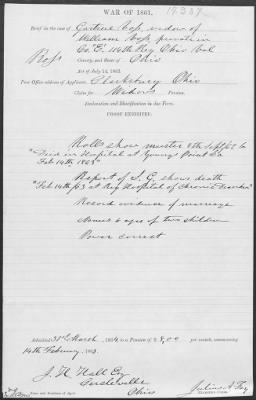 WAR OF 1861.
Brief in the case of Gertrude Ross, widow of
William Ross, private in
Co. "E" 114th Reg Ohio Vol
Ross County, and State of Ohio
Act of July 14, 1862.
Post Office address of Applicant, Clarksburg Ohio
Claim for Widow's Pension.
Declaration and Identification in due Form.
PROOF EXHIBITED:
Rolls show muster 8th Sept 62
"Died in Hospital at Youngs Point La
Feb 14th 1863"
Report of S. G. shows death
"Feb 14th /63 at Reg Hospital of Chronic Diarrhea"
Record evidence of marriage
Names & ages of two children
Power correct
Admitted 31st March, 1864 to a Pension of $ 8.00 per month, commencing
14th February, 1863.
J. H. Hall Esq
Circleville
Ohio
Julius A. Fay
Name and Residence of Agent.